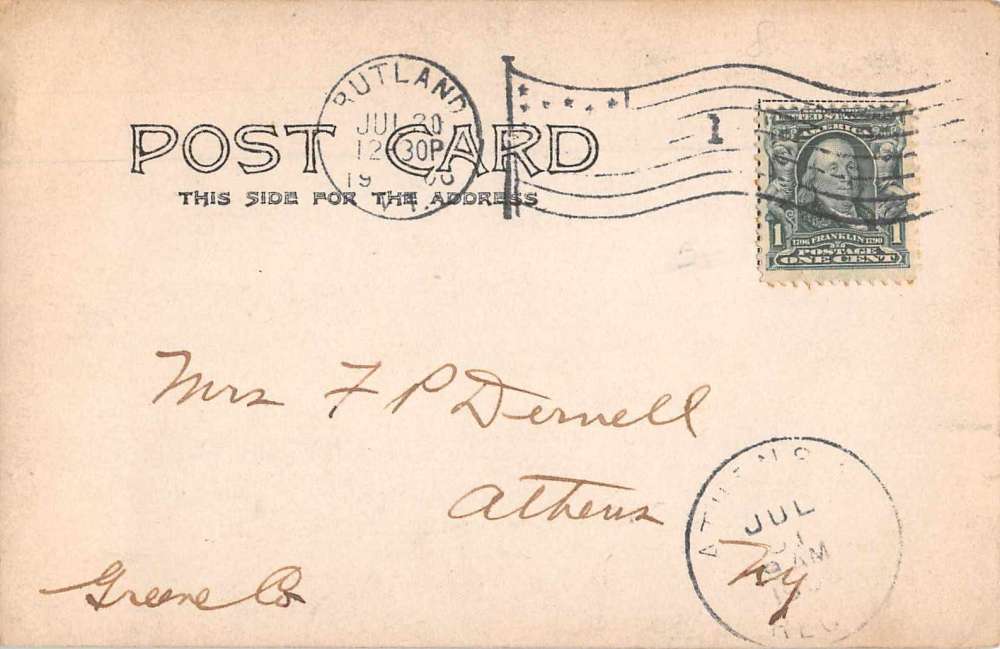 RUTLAND
JUL 30
12 30P
19 06
VT.
1
POST CARD
THIS SIDE FOR THE ADDRESS
UNITED STATES OF
AMERICA
1 1
FRANKLIN
POSTAGE
ONE CENT
Mrs F P Dernell
Athens
Ny
Greene Co
ATHENS
JUL
31
AM
REC